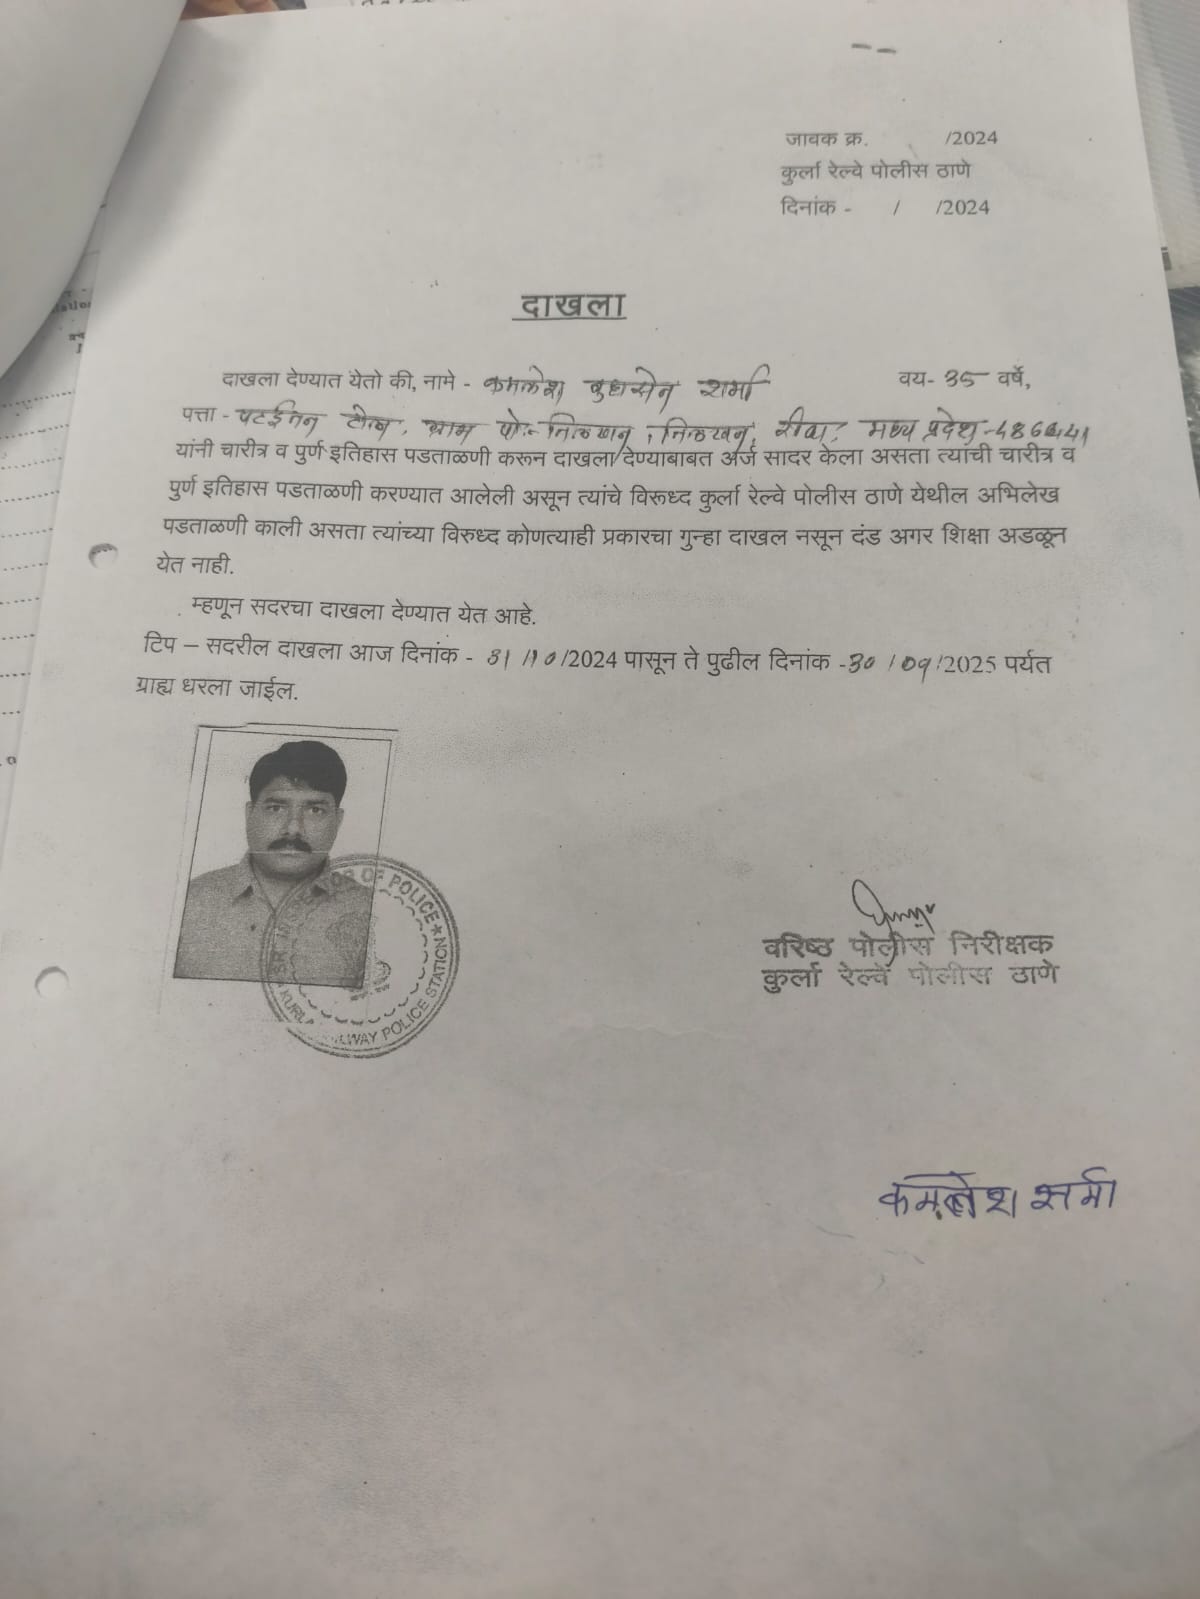 जावक क्र. /2024
कुर्ला रेल्वे पोलीस ठाणे
दिनांक - / /2024
दाखला
दाखला देण्यात येतो की, नामे - कमलेश बुध्दसेन शर्मा वय- 35 वर्षे,
पत्ता - टोला, ग्राम पो:- रीवा, मध्य प्रदेश-486441
यांनी चारीत्र व पुर्ण इतिहास पडताळणी करून दाखला देण्याबाबत अर्ज सादर केला असता त्यांची चारीत्र व
पुर्ण इतिहास पडताळणी करण्यात आलेली असून त्यांचे विरूध्द कुर्ला रेल्वे पोलीस ठाणे येथील अभिलेख
पडताळणी काली असता त्यांच्या विरुध्द कोणत्याही प्रकारचा गुन्हा दाखल नसून दंड अगर शिक्षा अडळून
येत नाही.
म्हणून सदरचा दाखला देण्यात येत आहे.
टिप – सदरील दाखला आज दिनांक - 31/10/2024 पासून ते पुढील दिनांक -30/09/2025 पर्यत
ग्राह्य धरला जाईल.
SR. INSPECTOR OF POLICE
KURLA RAILWAY POLICE STATION
वरिष्ठ पोलीस निरीक्षक
कुर्ला रेल्वे पोलीस ठाणे
कमलेश शर्मा